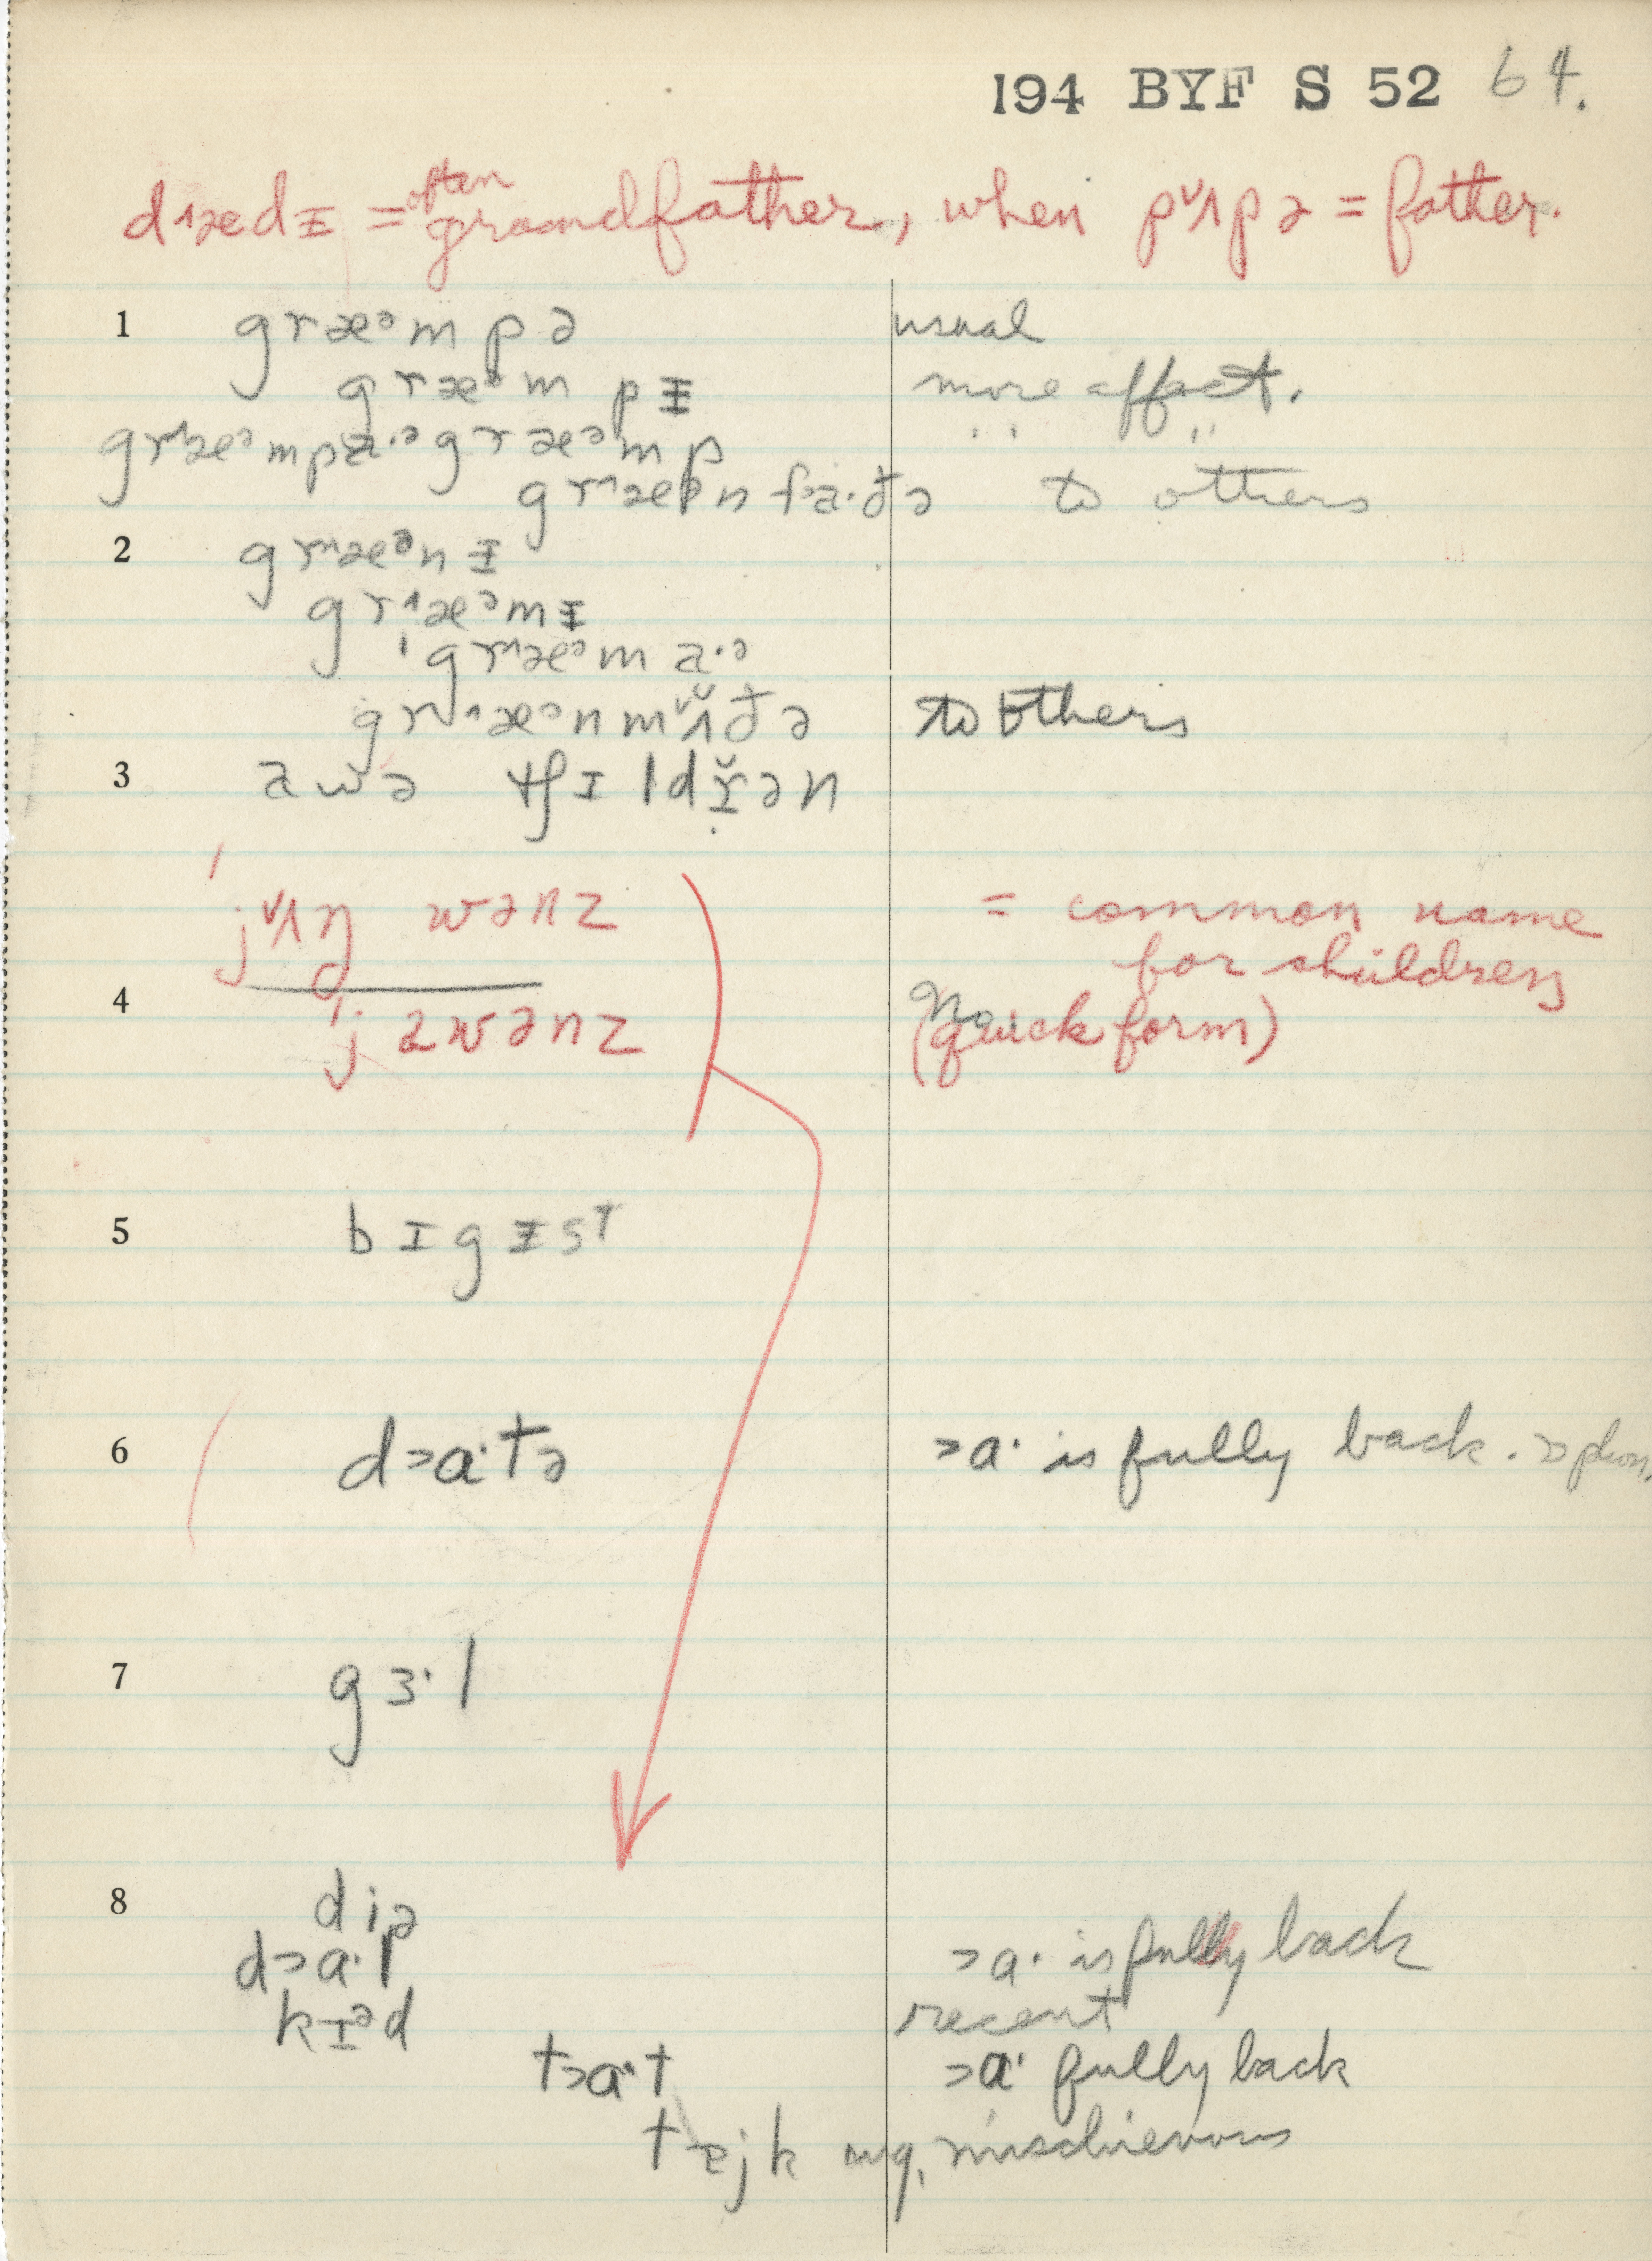 194 BYF S 52 64.
d˄ædᵻ = often grandfather, when p˅ʌpə = father.
1 græᵊmpə usual
græᵊm pᵻ more affect.
gr˄æᵊmpa·ᵊ græᵊmp " "
gr˄æᵊn fa·ðə to others
2 gr˄æᵊnᵻ
gr˄æᵊmᵻ
'gr˄æᵊm a·ᵊ
gr˄æᵊnm˅ʌðə to others
3 awə tʃɪldřən
'j˅ʌŋ wənz = common name
for children
4 No
'jawənz (quick form)
5 bɪgᵻst
6 d>ɑ·tə >ɑ· is fully back.
7 gɜ·l
8 diə
d>ɑ·l >ɑ· is fully back
kɪᵊd recent
t>ɑ·t >ɑ· fully back
tejk mischievous